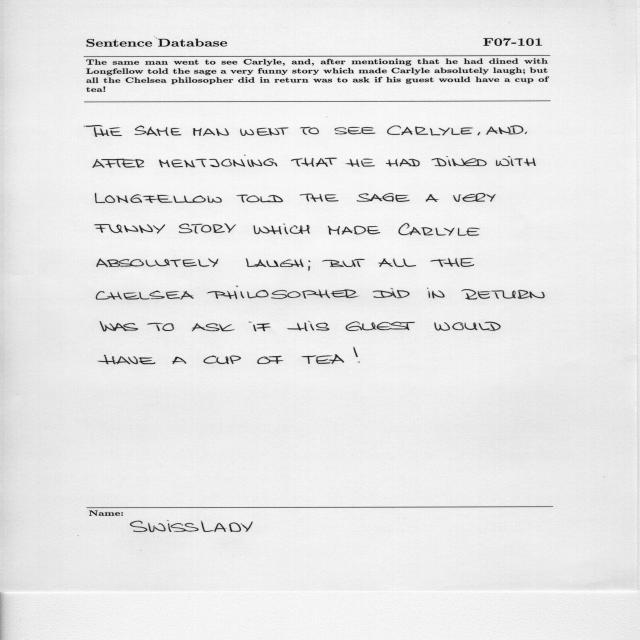 Sentence Database F07-101
The same man went to see Carlyle, and, after mentioning that he had dined with
Longfellow told the sage a very funny story which made Carlyle absolutely laugh; but
all the Chelsea philosopher did in return was to ask if his guest would have a cup of
tea!
THE SAME MAN WENT TO SEE CARLYLE, AND,
AFTER MENTIONING THAT HE HAD DINED WITH
LONGFELLOW TOLD THE SAGE A VERY
FUNNY STORY WHICH MADE CARLYLE
ABSOLUTELY LAUGH; BUT ALL THE
CHELSEA PHILOSOPHER DID IN RETURN
WAS TO ASK IF HIS GUEST WOULD
HAVE A CUP OF TEA!
Name:
SWISSLADY